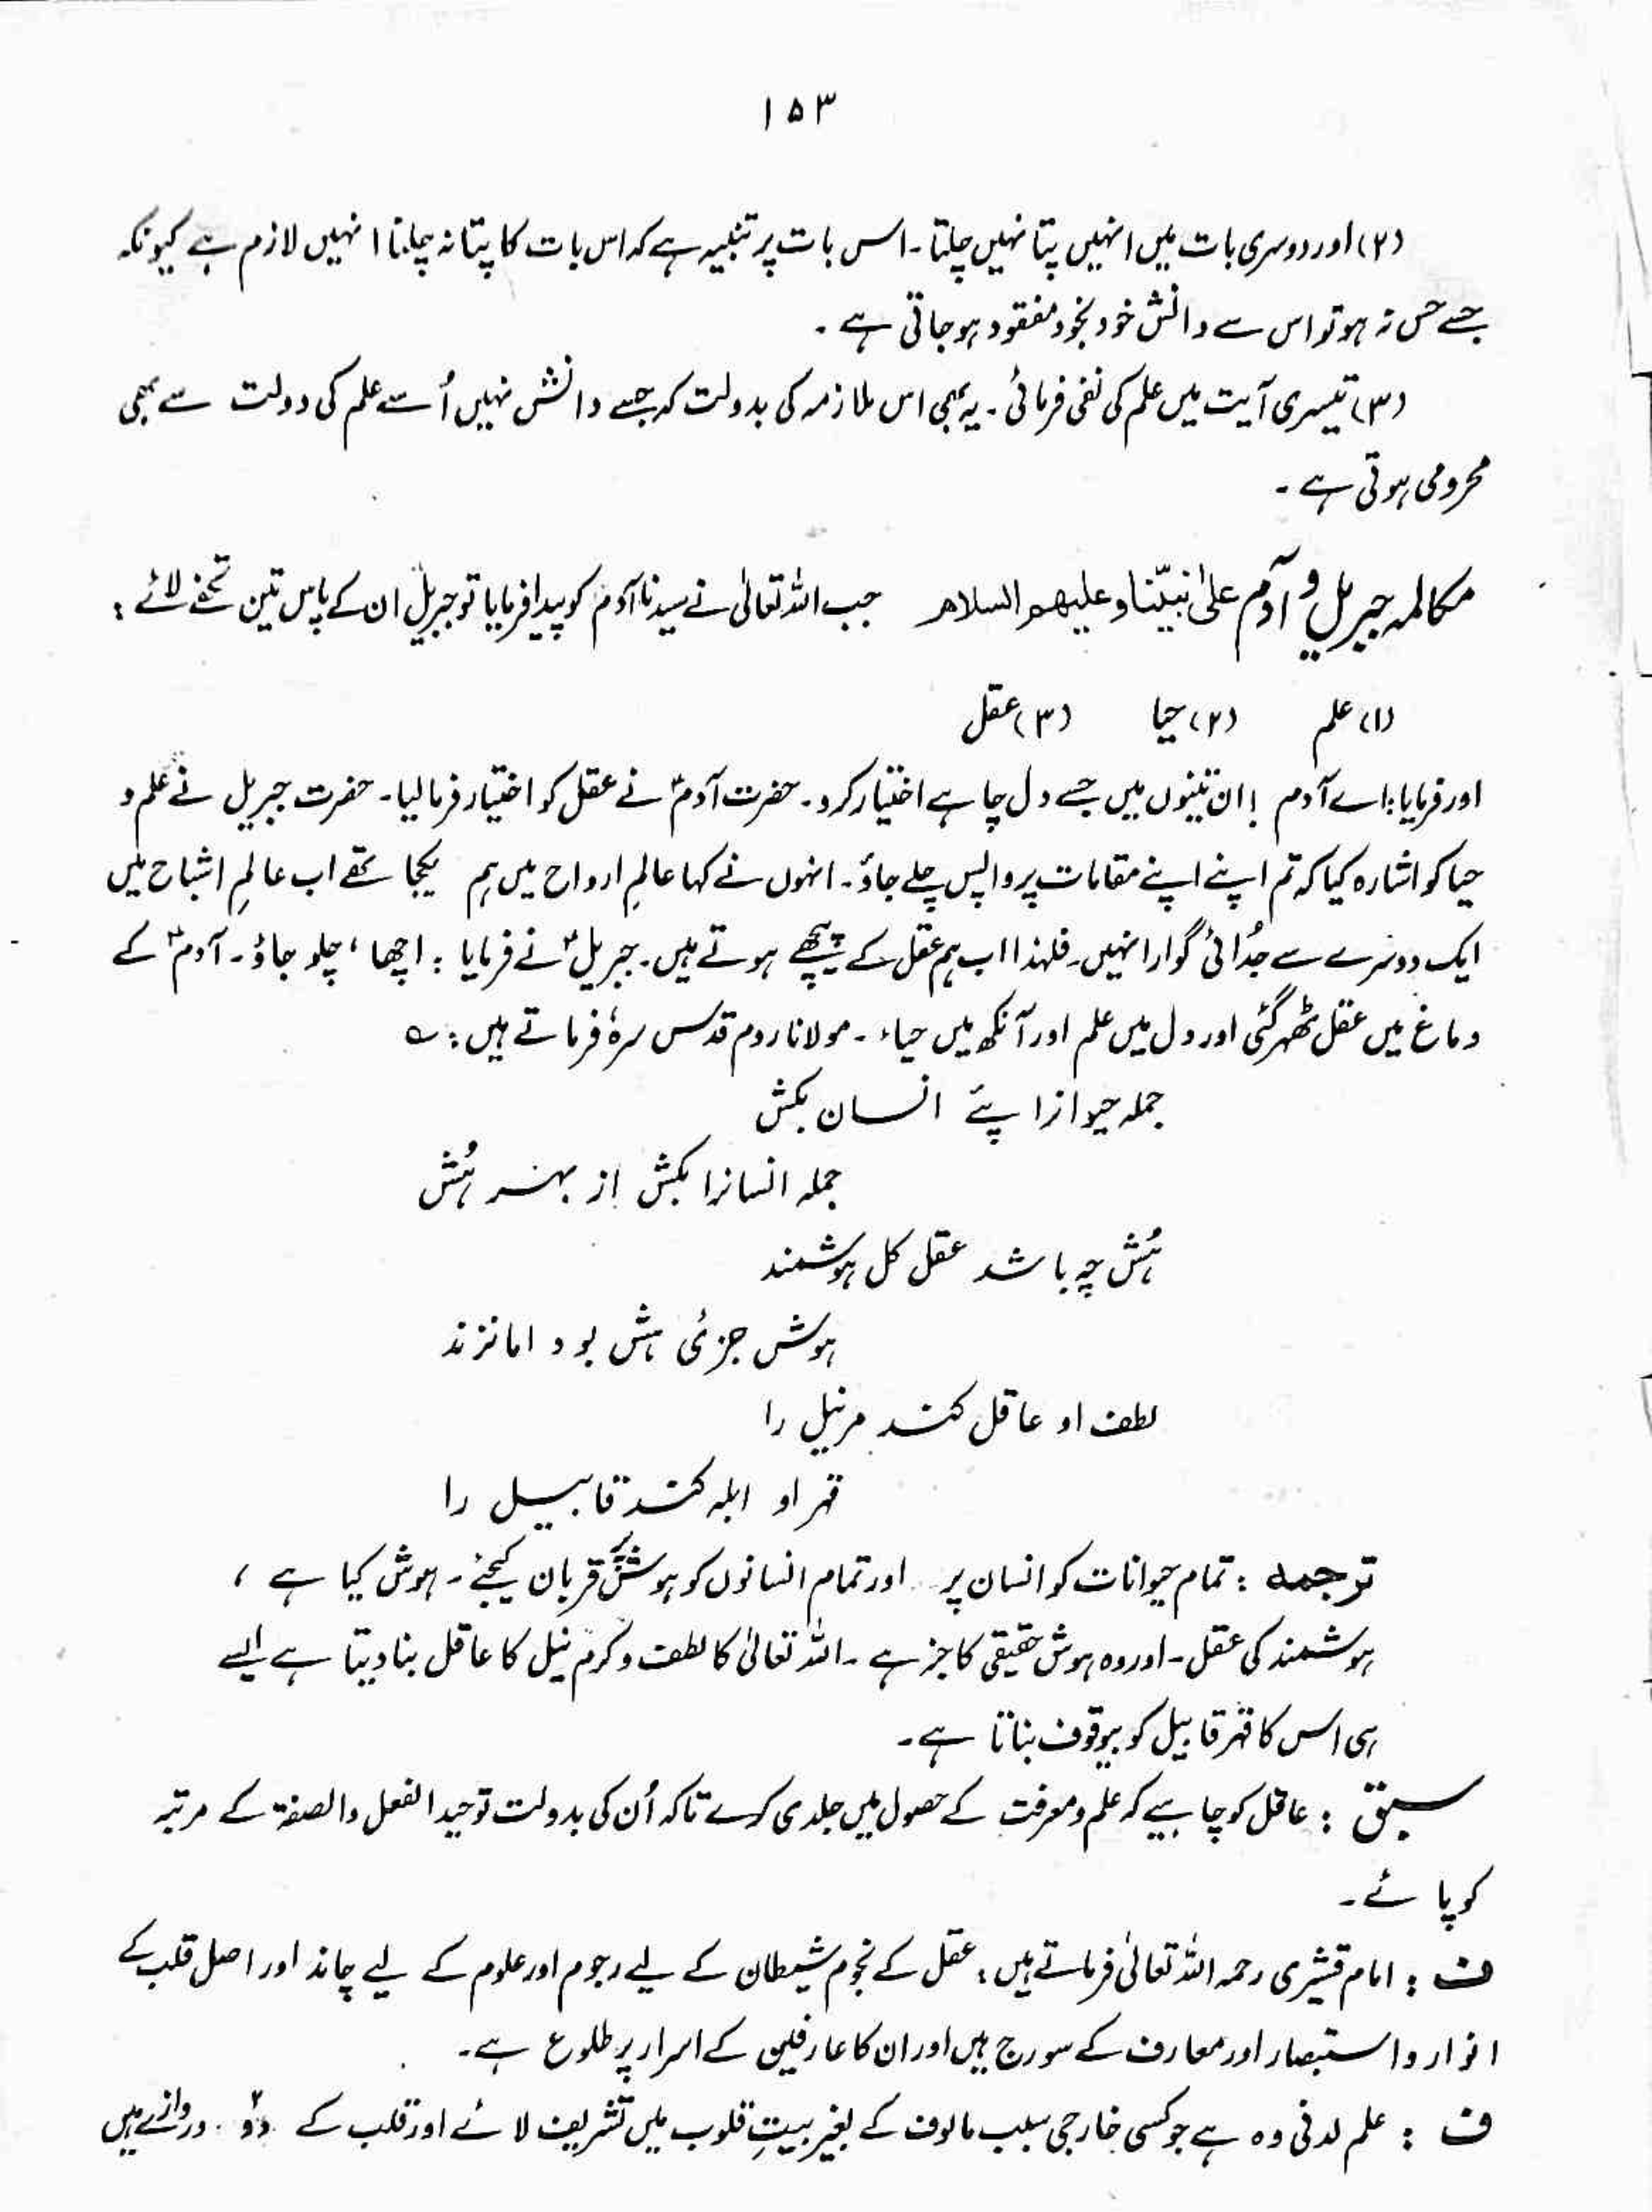 ۱۵۳
(۲) اور دوسری بات میں انہیں پتا نہیں چلتا۔ اس بات پر تنبیہ ہے کہ اس بات کا پتا نہ چلنا انہیں لازم ہے کیونکہ
جسے حس نہ ہو تو اس سے دانش خود بخود مفقود ہو جاتی ہے۔
(۳) تیسری آیت میں علم کی نفی فرمائی۔ یہ بھی اس ملازمہ کی بدولت کہ جسے دانش نہیں اُسے علم کی دولت سے بھی
محرومی ہوتی ہے۔
مکالمہ جبریل و آدم علیٰ نبیّنا و علیہم السلام جب اللہ تعالیٰ نے سیدنا آدمؑ کو پیدا فرمایا تو جبریلؑ ان کے پاس تین تحفے لائے :
(۱) علم (۲) حیا (۳) عقل
اور فرمایا : اے آدم ! ان تینوں میں جسے دل چاہے اختیار کرو۔ حضرت آدمؑ نے عقل کو اختیار فرما لیا۔ حضرت جبریل نے علم و
حیا کو اشارہ کیا کہ تم اپنے اپنے مقامات پر واپس چلے جاؤ۔ انہوں نے کہا عالمِ ارواح میں ہم یکجا تھے اب عالمِ اشباح میں
ایک دوسرے سے جُدائی گوارا نہیں۔ فلہذا اب ہم عقل کے پیچھے ہوتے ہیں۔ جبریلؑ نے فرمایا : اچھا ، چلو جاؤ۔ آدمؑ کے
دماغ میں عقل ٹھہر گئی اور دل میں علم اور آنکھ میں حیاء۔ مولانا روم قدس سرہٗ فرماتے ہیں : ؎
جملہ حیوانرا پئے انسان بکش
جملہ انسانرا بکش از بہر ہُش
ہُش چہ باشد عقل کل ہوشمند
ہوش جزئی ہش بود اما نژند
لطف او عاقل کند مر نیل را
قہر او ابلہ کند قابیل را
ترجمہ : تمام حیوانات کو انسان پر اور تمام انسانوں کو ہوش پر قربان کیجئے۔ ہوش کیا ہے ،
ہوشمند کی عقل۔ اور وہ ہوش حقیقی کا جز ہے۔ اللہ تعالیٰ کا لطف و کرم نیل کا عاقل بنا دیتا ہے ایسے
ہی اس کا قہر قابیل کو بیوقوف بناتا ہے۔
سبق : عاقل کو چاہیے کہ علم و معرفت کے حصول میں جلدی کرے تاکہ اُن کی بدولت توحید الفعل والصفۃ کے مرتبہ
کو پائے۔
ف : امام قشیری رحمہ اللہ تعالیٰ فرماتے ہیں : عقل کے نجوم شیطان کے لیے رجوم اور علوم کے لیے چاند اور اصل قلب کے
انوار و استبصار اور معارف کے سورج ہیں اور ان کا عارفین کے اسرار پر طلوع ہے۔
ف : علم لدنی وہ ہے جو کسی خارجی سبب مالوف کے بغیر بیتِ قلوب میں تشریف لائے اور قلب کے دو دروازے ہیں